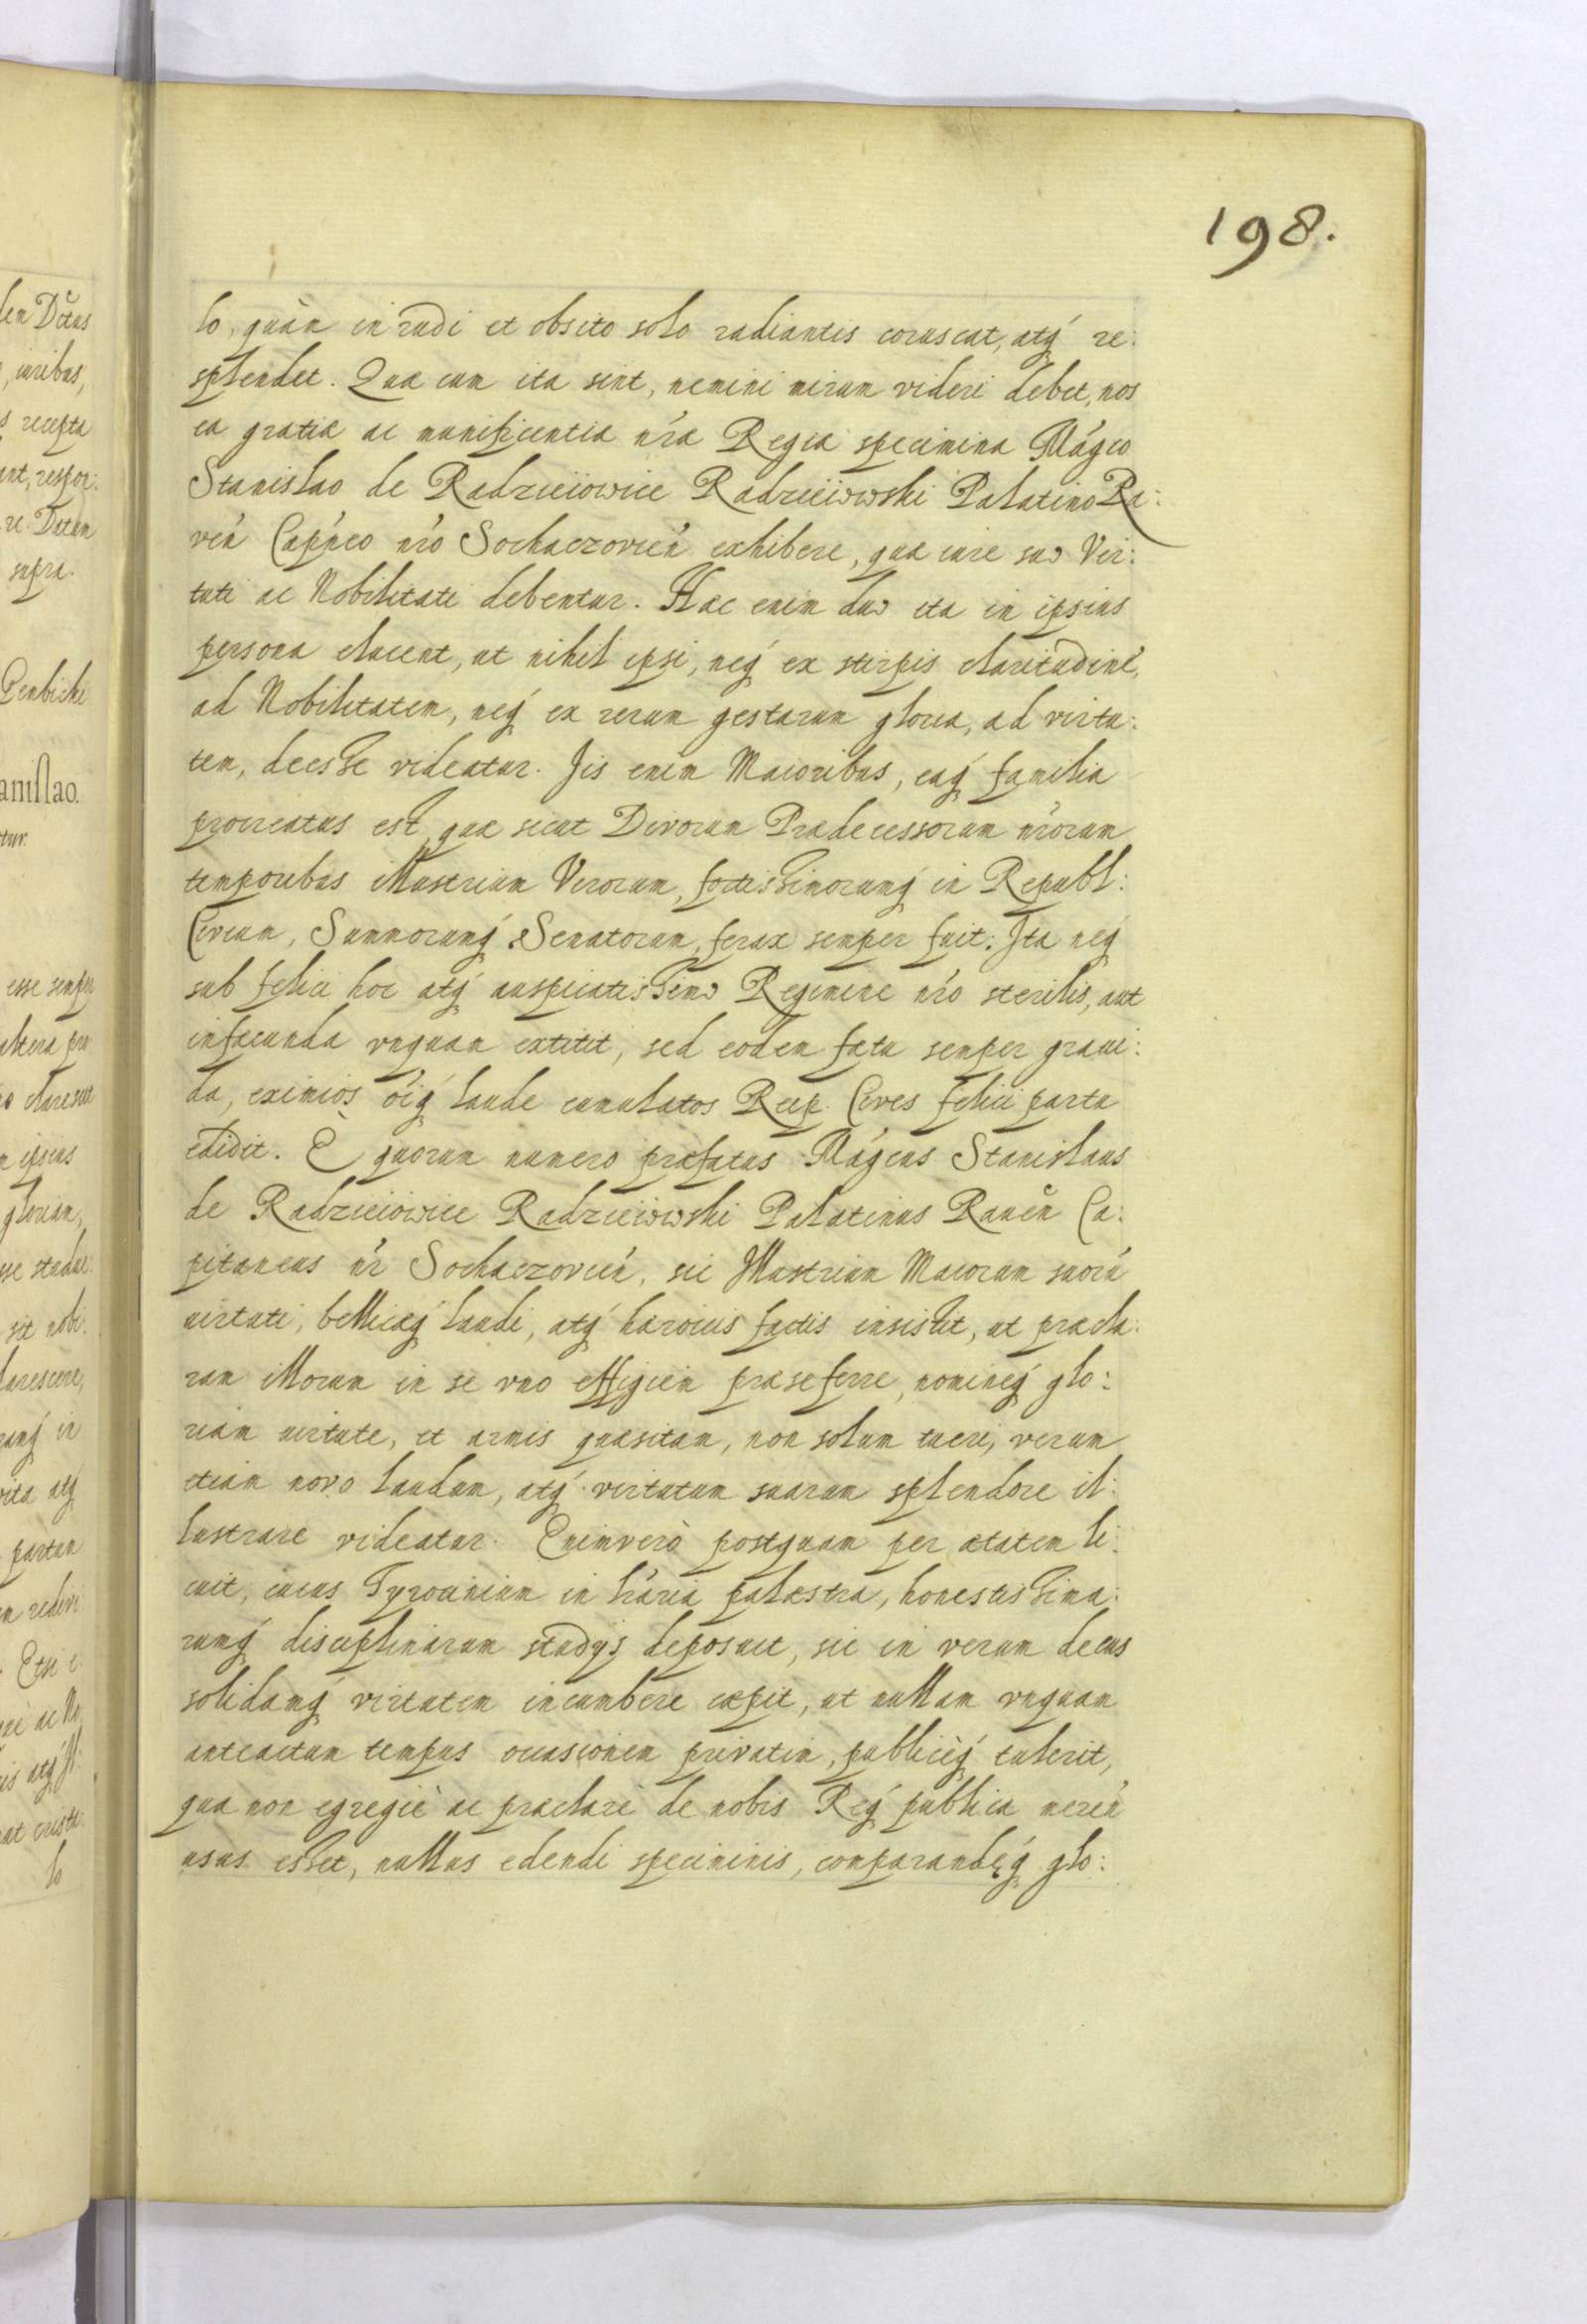 198.
lo, quàm in rudi et obsito solo radiantis coruscat, atq́ re:
splendet. Quæ cum ita sint, nemini mirum videri debet, nos
ea gratiæ ac munificentiæ nr̃æ Regiæ specimina Mágco
Stanislao de Radzieiowice Radzieiowski Palatino Ra:
ven̄ Cap̄neo nr̃o Sochaczovien̄ exhibere, quæ iure suo Vir:
tuti ac Nobilitati debentur. Hæc enim duo ita in ipsius
persona elucent, ut nihil ipsi, neq́ ex stirpis claritudine,
ad Nobilitatem, neq́ ex rerum gestarum gloria, ad virtu:
tem, deesse videatur. Iis enim Maioribus, eaq́ familia
procreatus est, quæ sicut Divorum Prædecessorum nr̃orum
temporibus illustrium Virorum, fortissimorumq́ in Republ:
Civium, Summorumq́ Senatorum, ferax semper fuit: Ita neq́
sub felici hoc atq́ auspicatissimo Regimine nr̃o sterilis, aut
infæcunda vnquam extitit, sed eodem fætu semper graui:
da, eximios oi̇́q́ laude cumulatos Reip. Cives felici partu
edidit. È quorum numero præfatus Mágcus Stanislaus
de Radzieiowice Radzieiowski Palatinus Raueñ Ca:
pitaneus nr̃ Sochaczovien̄, sic Illustrium Maiorum suorū
uirtuti, bellicæq́ laudi, atq́ haroicis factis insistit, ut præcla:
ram illorum in se vno effigiem præseferre, nominisq́ glo:
riam uirtute, et armis quæsitam, non solum tueri, verum
etiam novo laudum, atq́ virtutum suarum splendore il:
lustrare videatur. Enimverò postquam per ætatem li:
cuit, cuius Tyrocinium in lr̃aria palæstra, honestissima:
rumq́ disciplinarum studijs deposuit, sic in verum decus
solidamq́ virtutem incumbere cæpit, ut nullam vnquam
anteactum tempus occasionem privatim, publicèq́ tulerit,
qua non egregiè ac præclarè de nobis Req́ publica meren̄
usus esset, nullus edendi speciminis, comparandęq́ glo: